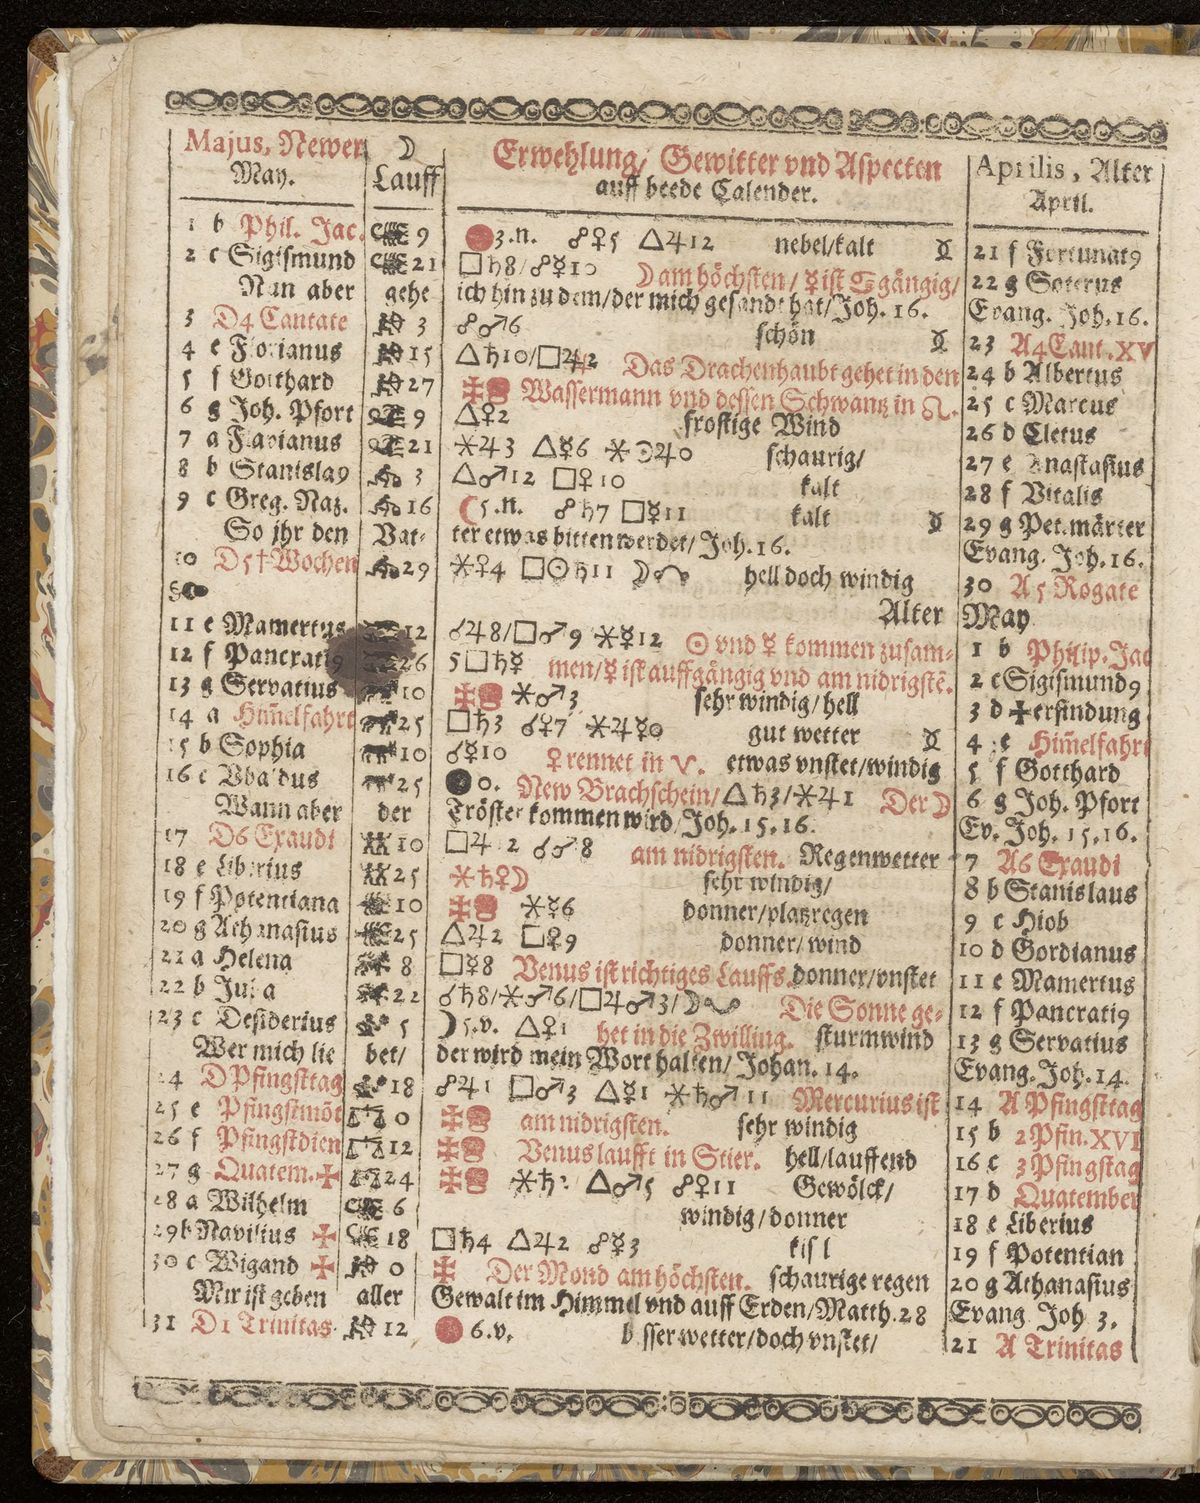 Majus, Newer ☽ Erwehlung/ Gewitter vnd Aspecten Aprilis, Alter
May. Lauff auff beede Calender. April.
1 b Phil. Jac. 9 3.n. ☍♀5 △♃12 nebel/kalt 21 f Fortunat9
2 c Sigismund 21 □♄8/☍☿10 ☽am höchsten/☿ist ♋gängig/ 22 g Soterus
Nun aber gehe ich hin zu dem/der mich gesandt hat/Joh. 16. Evang. Joh. 16.
3 D4 Cantate 3 ☍♂6 schön 23 A4Cant. XV
4 e Florianus 15 △♄10/□♃2 Das Drachenhaubt gehet in den 24 b Albertus
5 f Gotthard 27 ✠ Wassermann vnd dessen Schwantz in ♌. 25 c Marcus
6 g Joh. Pfort 9 △♀2 frostige Wind 26 d Cletus
7 a Flavianus 21 ⚹♃3 △☿6 ⚹☉♃0 schaurig/ 27 e Anastasius
8 b Stanisla9 3 △♂12 □♀10 kalt 28 f Vitalis
9 c Greg. Naz. 16 ☾5.n. ☍♄7 □☿11 kalt 29 g Pet. märter
So jhr den Vat- ter etwas bitten werdet/Joh. 16. Evang. Joh. 16.
10 D5†Wochen 29 ⚹♀4 □☉♄11 ☽☊ hell doch windig 30 A5 Rogate
Alter May
11 e Mamertus 12 ☌♃8/□♂9 ⚹☿12 ☉ vnd ☿ kommen zusam- 1 b Philip. Jac
12 f Pancrati9 26 5□♄☿ men/☿ ist auffgängig vnd am nidrigstē. 2 c Sigismund9
13 g Servatius 10 ✠ ⚹♂3 sehr windig/hell 3 d ✠erfindung
14 a Him̄elfahrt 25 □♄3 ☌♀7 ⚹♃☿0 gut wetter 4 e Him̄elfahrt
15 b Sophia 10 ☌☿10 ♀rennet in ♈. etwas vnstet/windig 5 f Gotthard
16 c Vbaldus 25 ●0. New Brachschein/△♄3/⚹♃1 Der☽ 6 g Joh. Pfort
Wann aber der Tröster kommen wird/Joh. 15. 16. Ev. Joh. 15. 16.
17 D6 Exaudi 10 □♃2 ☌♂8 am nidrigsten. Regenwetter 7 A6 Exaudi
18 e Liberius 25 ⚹♄♀☽ sehr windig/ 8 b Stanislaus
19 f Potentiana 10 ✠ ⚹☿6 donner/platzregen 9 c Hiob
20 g Athanasius 25 △♃2 □♀9 donner/wind 10 d Gordianus
21 a Helena 8 □☿8 Venus ist richtiges Lauffs. donner/vnstet 11 e Mamertus
22 b Julia 22 ☌♄8/⚹♂6/□♃♂3/☽☋ Die Sonne ge- 12 f Pancrati9
23 c Desiderius 5 ☽5.v. △♀1 het in die Zwilling. sturmwind 13 g Servatius
Wer mich lie bet/ der wird mein Wort halten/Johan. 14. Evang. Joh. 14.
24 D Pfingsttag 18 ☍♃1 □♂3 △☿1 ⚹♄♂11 Mercurius ist 14 A Pfingsttag
25 e Pfingstmöt 0 ✠ am nidrigsten. sehr windig 15 b 2Pfin. XVI
26 f Pfingstdien 12 ✠ Venus laufft in Stier. hell/lauffend 16 c 3Pfingstag
27 g Quatem. ✠ 24 ✠ ⚹♄ △♂5 ☍♀11 Gewölck/ 17 d Quatember
28 a Wilhelm 6 windig/donner 18 e Liberius
29 b Navilius ✠ 18 □♄4 △♃2 ☍☿3 19 f Potentian
30 c Wigand ✠ 0 ✠ Der Mond am höchsten. schaurige regen 20 g Athanasius
Mir ist geben aller Gewalt im Himmel vnd auff Erden/Matth. 28 Evang. Joh 3.
31 D1 Trinitas. 12 6.v. wetter/doch vnstet/ 21 A Trinitas